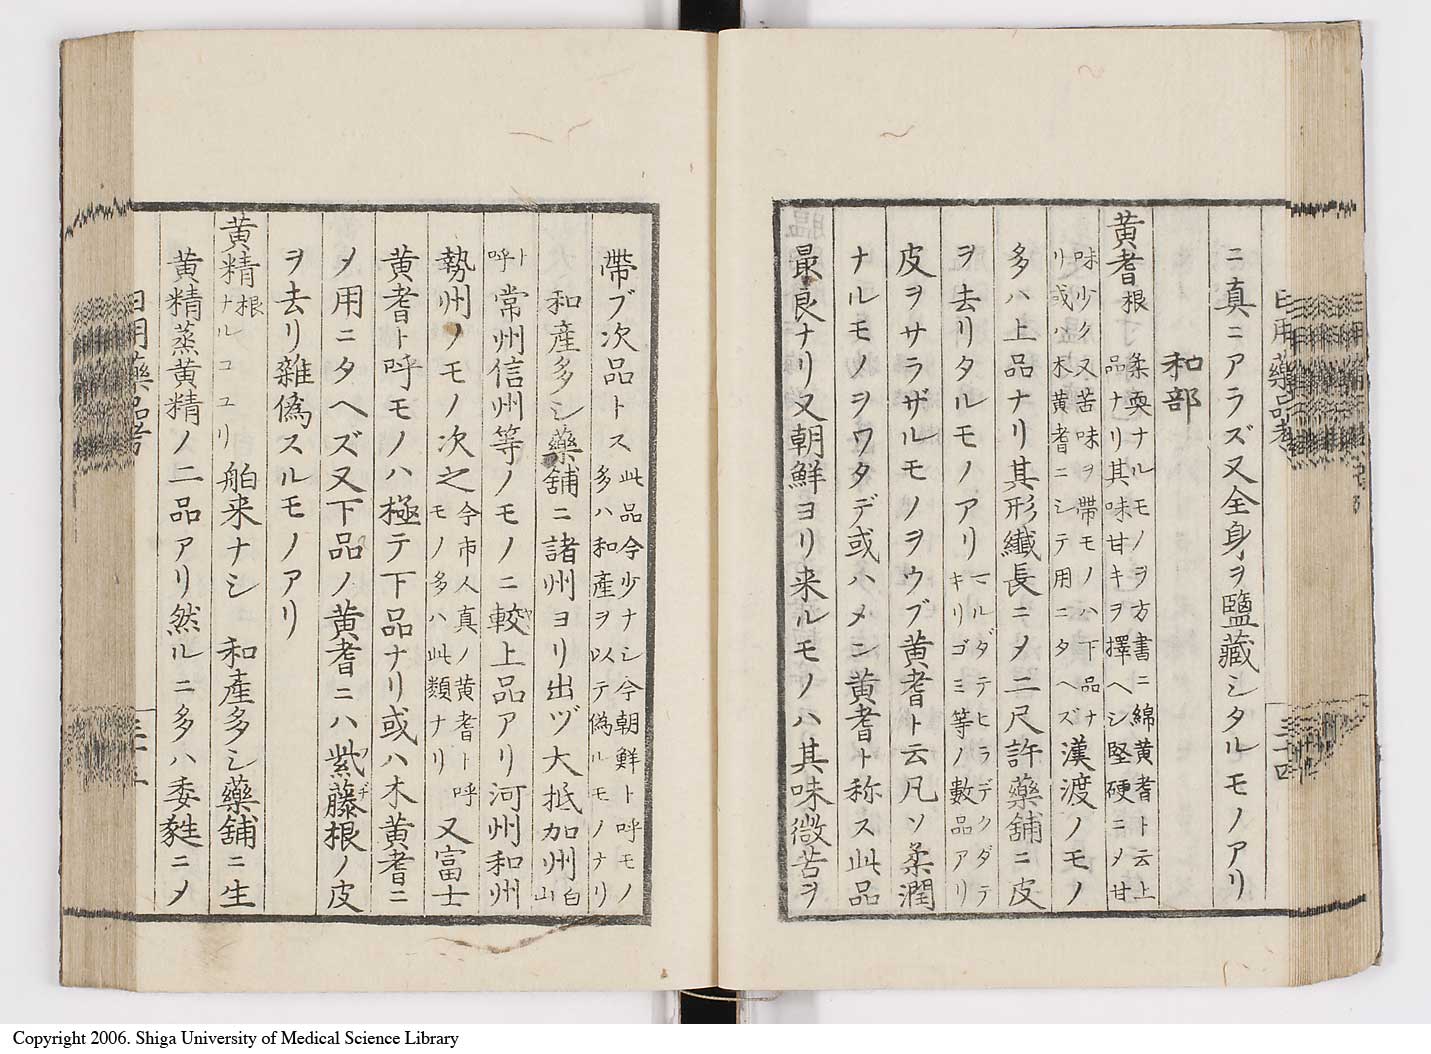 ニ真ニアラズ又全身ヲ鹽藏シタルモノアリ
和部
黄耆根 柔耎ナルモノヲ方書ニ綿黄耆ト云上
品ナリ其味甘キヲ擇ヘシ堅硬ニメ甘
味少ク又苦味ヲ帶モノハ下品ナ
リ或ハ木黄耆ニシテ用ニタヘズ 漢渡ノモノ
多ハ上品ナリ其形纖長ニメ二尺許藥舗ニ皮
ヲ去リタルモノアリ マルダテヒラデクダテ
キリゴミ等ノ數品アリ
皮ヲサラザルモノヲウブ黄耆ト云凡ソ柔潤
ナルモノヲワタデ或ハメン黄耆ト称ス此品
最良ナリ又朝鮮ヨリ来ルモノハ其味微苦ヲ
帶ブ次品トス 此品今少ナシ今朝鮮ト呼モノ
多ハ和產ヲ以テ偽ルモノナリ
和產多シ藥舗ニ諸州ヨリ出ヅ大抵加州白山
ト呼 常州信州等ノモノニ較上品アリ河州和州
勢州ノモノ次之 今市人真ノ黄耆ト呼
モノ多ハ此類ナリ 又富士
黄耆ト呼モノハ極テ下品ナリ或ハ木黄耆ニ
メ用ニタヘズ又下品ノ黄耆ニハ紫藤根ノ皮
ヲ去リ雜偽スルモノアリ
黄精根 ナルコユリ 舶来ナシ 和產多シ藥舗ニ生
黄精蒸黄精ノ二品アリ然ルニ多ハ委蕤ニメ
日用藥品考
三十四
日用藥品考
Copyright 2006. Shiga University of Medical Science Library